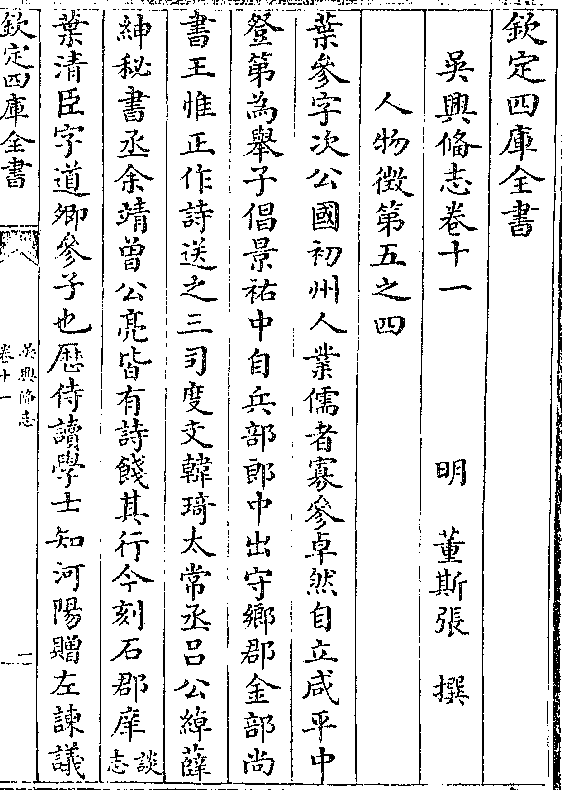 欽定四庫全書
吳興備志卷十一
明 董斯張 撰
人物徵第五之四
葉參字次公國初州人業儒者寡參卓然自立咸平中
登第為舉子倡景祐中自兵部郎中出守鄉郡金部尚
書王惟正作詩送之三司度支韓琦太常丞吕公綽薛
紳秘書丞余靖曾公亮皆有詩餞其行今刻石郡庠談
志
葉清臣字道卿參子也歴侍讀學士知河陽贈左諫議
欽定四庫全書
吳興備志
卷十一
一